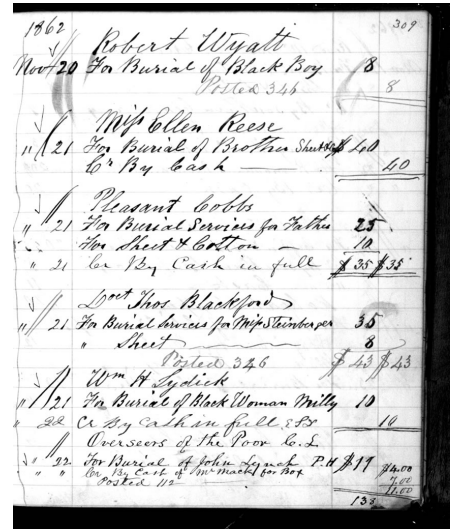 1862
309
Robert Wyatt
Nov 20 For Burial of Black Boy 8
Posted 346 8
Miss Ellen Reese
" 21 For Burial of Brother Sheet &c $40
Cr By Cash 40
Pleasant Cobbs
" 21 For Burial Services for Father 25
For Sheet & Cotton 10
" 21 Cr By Cash in full $35 $35
Doct Thos Blackford
" 21 For Burial Services for Miss Steinberger 35
" Sheet 8
Posted 346 $43 $43
Wm H Lydick
" 21 For Burial of Black Woman Milly 10
" 22 Cr By Cash in full 10
Overseers of the Poor C. L.
" 22 For Burial of John Lynch P. H $17
" " Cr By Cash of Mr Mack for Box $4.00
Posted 112 7.00
11.00
133